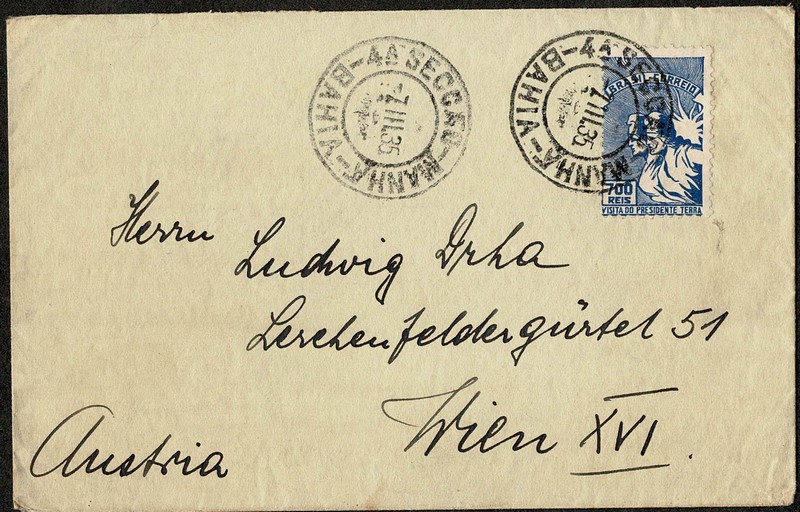 BAHIA - 4ª SECCÃO - MANHÃ
7.III.35
BAHIA - 4ª SECCÃO - MANHÃ
7.III.35
BRASIL CORREIO
700
REIS
VISITA DO PRESIDENTE TERRA
Herrn
Ludwig Drha
Lerchenfeldergürtel 51
Wien XVI.
Austria